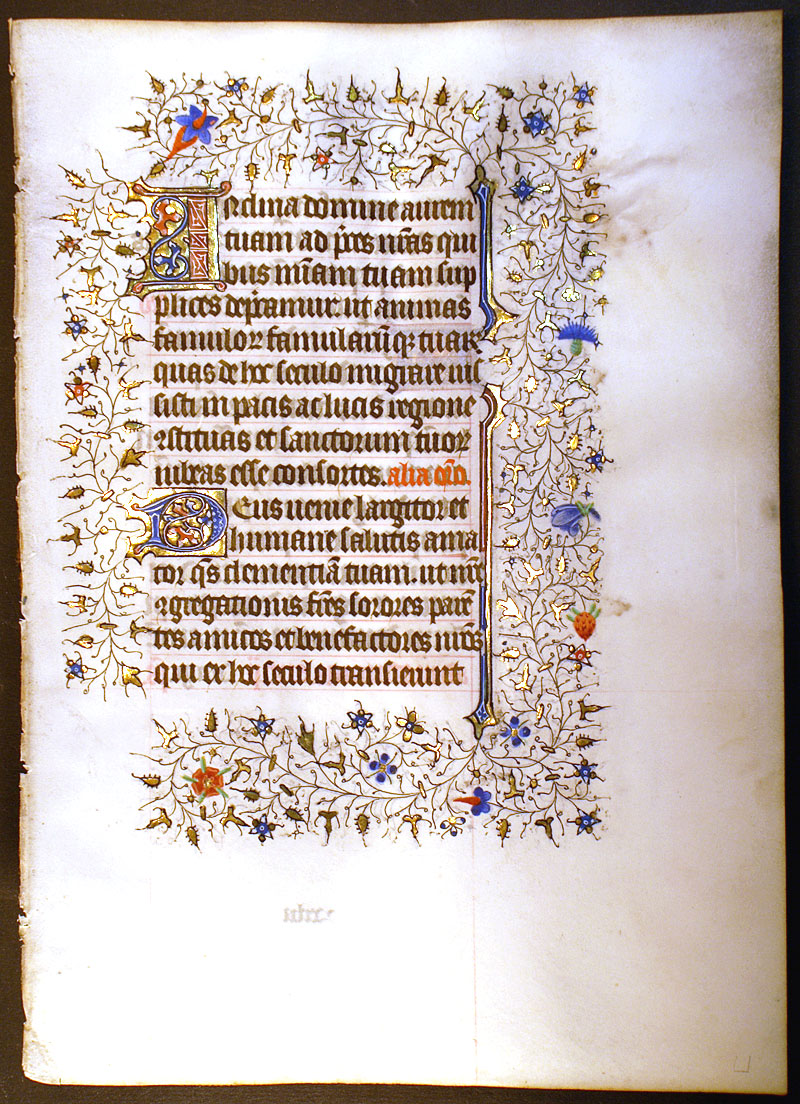 Inclina domine aurem
tuam ad p̄ces nr̄as qui
bus mīam tuam sup
plices dep̄camur. ut animas
famuloꝝ famularūqꝫ tuaꝝ
quas de hoc seculo migrare ius
sisti in pacis ac lucis regione
ꝯstituas et sanctorum tuoꝝ
iubeas esse consortes. alia or̄o.
Deus uenie largitor et
humane salutis ama
tor qs̄ clementiā tuam. ut nr̄e
ꝯgregationis fr̄es sorores paren̄
tes amicos et benefactores nr̄os
qui ex hoc seculo transierunt